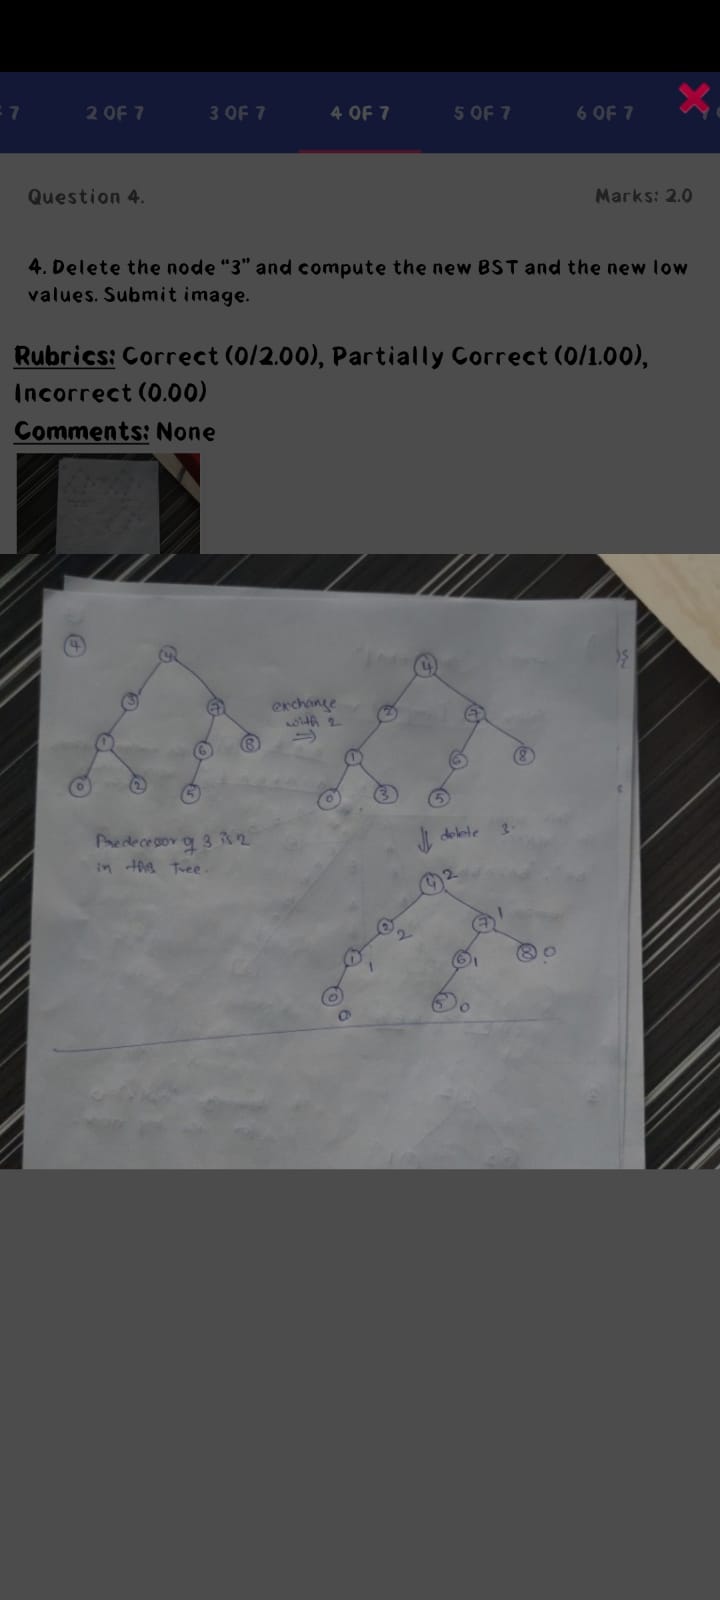 F 7 2 OF 7 3 OF 7 4 OF 7 5 OF 7 6 OF 7
Question 4. Marks: 2.0
4. Delete the node "3" and compute the new BST and the new low
values. Submit image.
Rubrics: Correct (0/2.00), Partially Correct (0/1.00),
Incorrect (0.00)
Comments: None
4
4
3 7
1 6 8
0 2 5
exchange
with 2
4
2 7
1 6 8
0 3 5
Predecesor of 3 is 2
in this Tree.
delete 3.
4 2
2 2 7 1
1 1 6 1 8 0
0 0 5 0